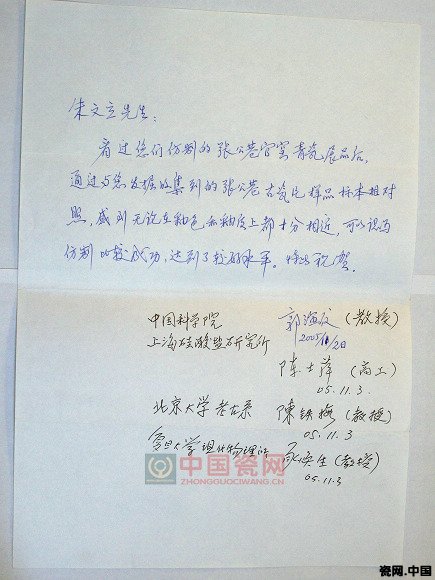 朱文立先生:
看过您们仿制的张公巷官窑青瓷展品后,
通过与您发掘收集到的张公巷古瓷片样品标本相对
照,感到无论在釉色和釉质上都十分相近,可以说
仿制比较成功,达到了较好水平。特此祝贺。
中国科学院 郭演仪(教授)
上海硅酸盐研究所 2005/11/20
陈士萍(高工)
05.11.3.
北京大学考古系 陳铁梅(教授)
05.11.3
复旦大学现代物理所 承焕生(教授)
05.11.3
中国瓷网
ZHONGGUOCIWANG.CN
瓷网.中国